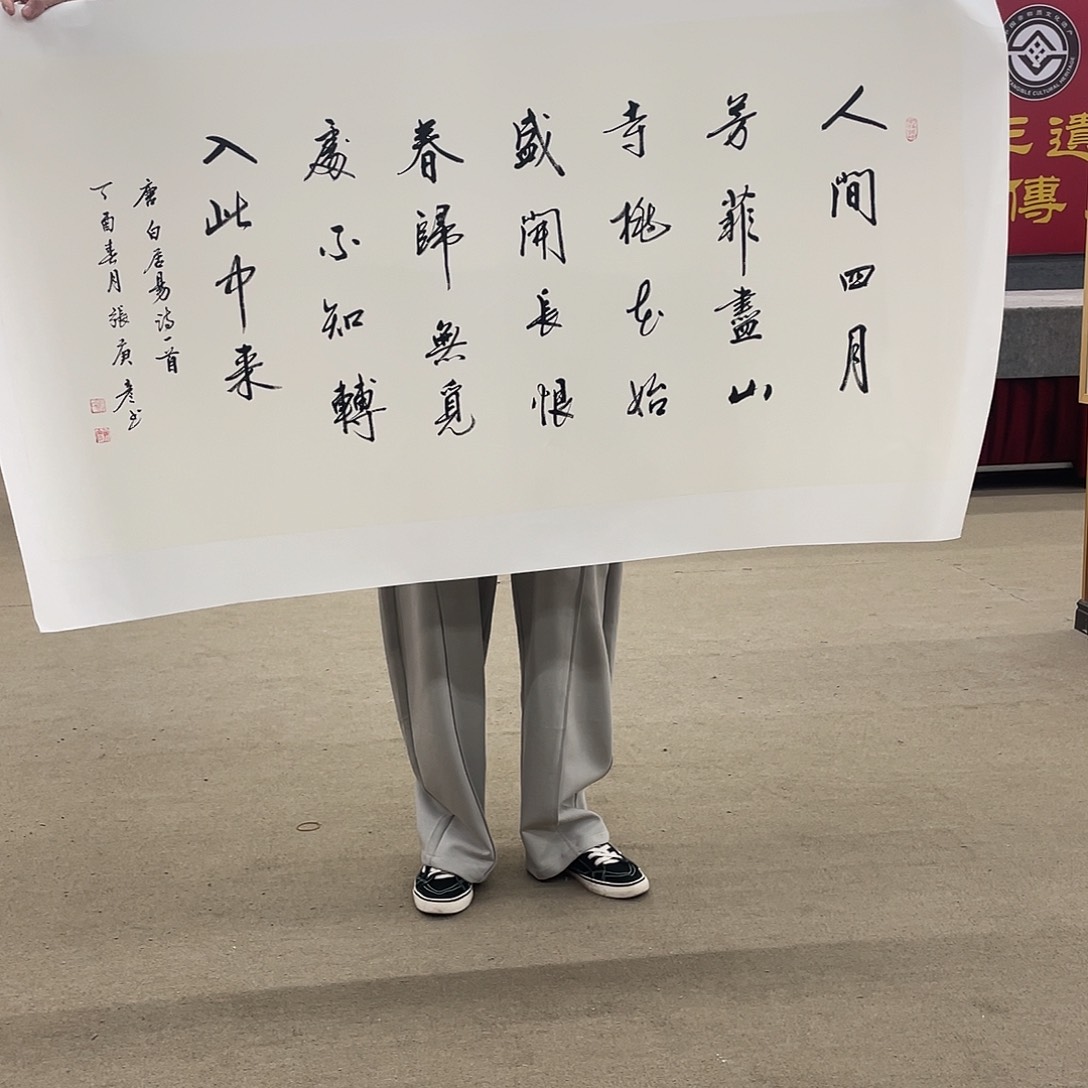 人間四月
芳菲盡山
寺桃花始
盛開長恨
春歸無覓
處不知轉
入此中来
唐白居易詩一首
丁酉春月張庚彥书
遺
傳